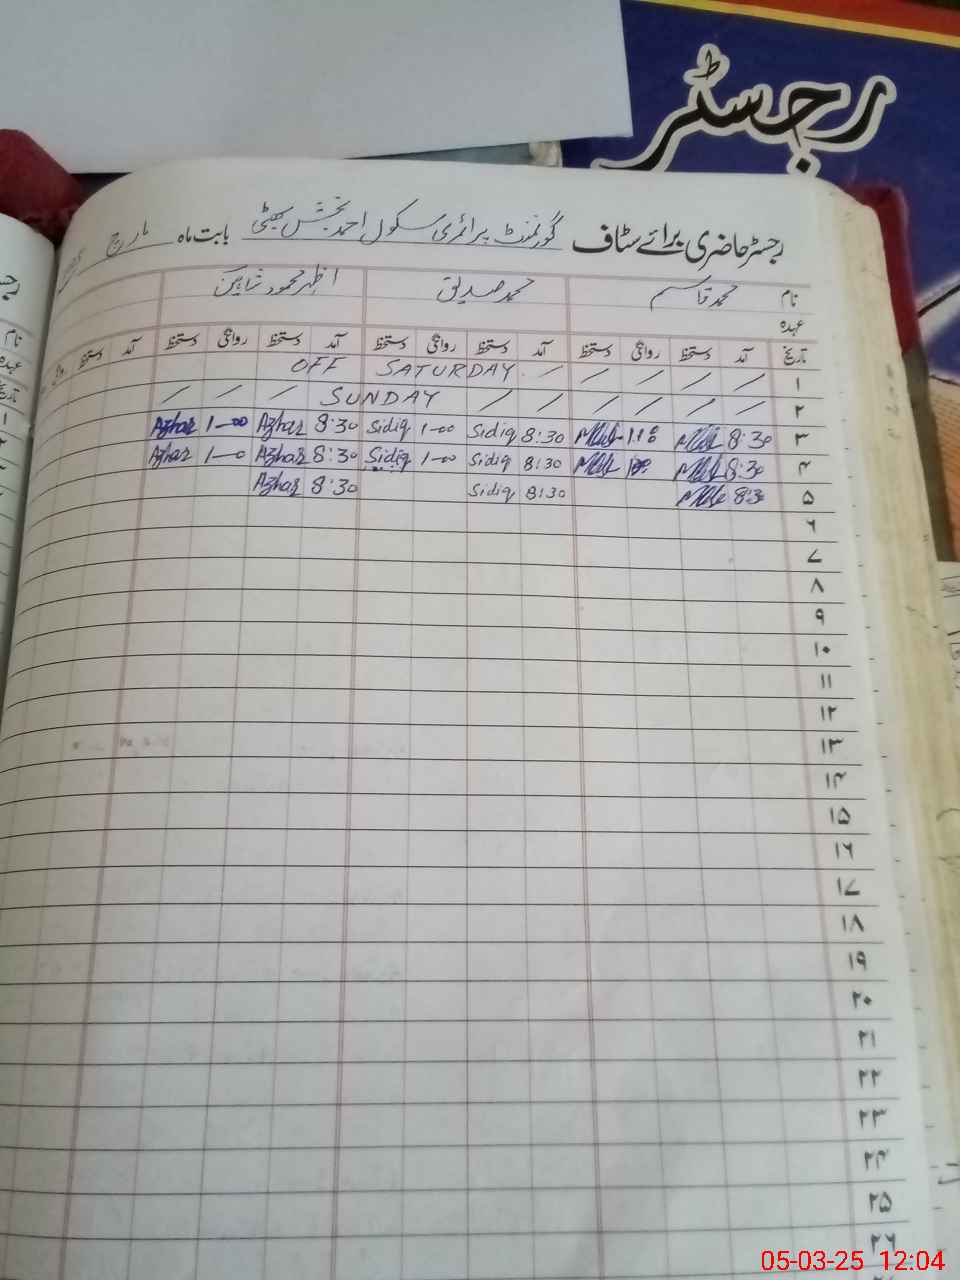 رجسٹر
رجسٹر حاضری برائے سٹاف گورنمنٹ پرائمری سکول احمد بخش بھٹی بابت ماہ مارچ
نام محمد قاسم محمد صدیق اظہر محمود شاہین
عہدہ
تاریخ آمد دستخط روانگی دستخط آمد دستخط روانگی دستخط آمد دستخط روانگی دستخط آمد دستخط
۱ / / / / / OFF SATURDAY
۲ / / / / / / SUNDAY / / /
۳ 8:30 8:30 Sidiq 1-00 Sidiq 8:30 Azhar 1-00 Azhar
۴ 8:30 8:30 Sidiq 1-00 Sidiq 8:30 Azhar 1-0 Azhar
۵ 8:30 8:30 Sidiq 8:30 Azhar
۶
۷
۸
۹
۱۰
۱۱
۱۲
۱۳
۱۴
۱۵
۱۶
۱۷
۱۸
۱۹
۲۰
۲۱
۲۲
۲۳
۲۴
۲۵
۲۶
نام
عہدہ
تاریخ
05-03-25 12:04